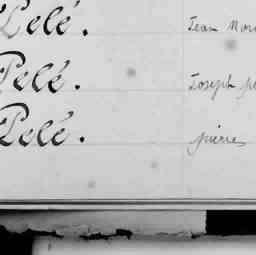 Pelé. Jean
Pelé. Joseph
Pelé. pierre